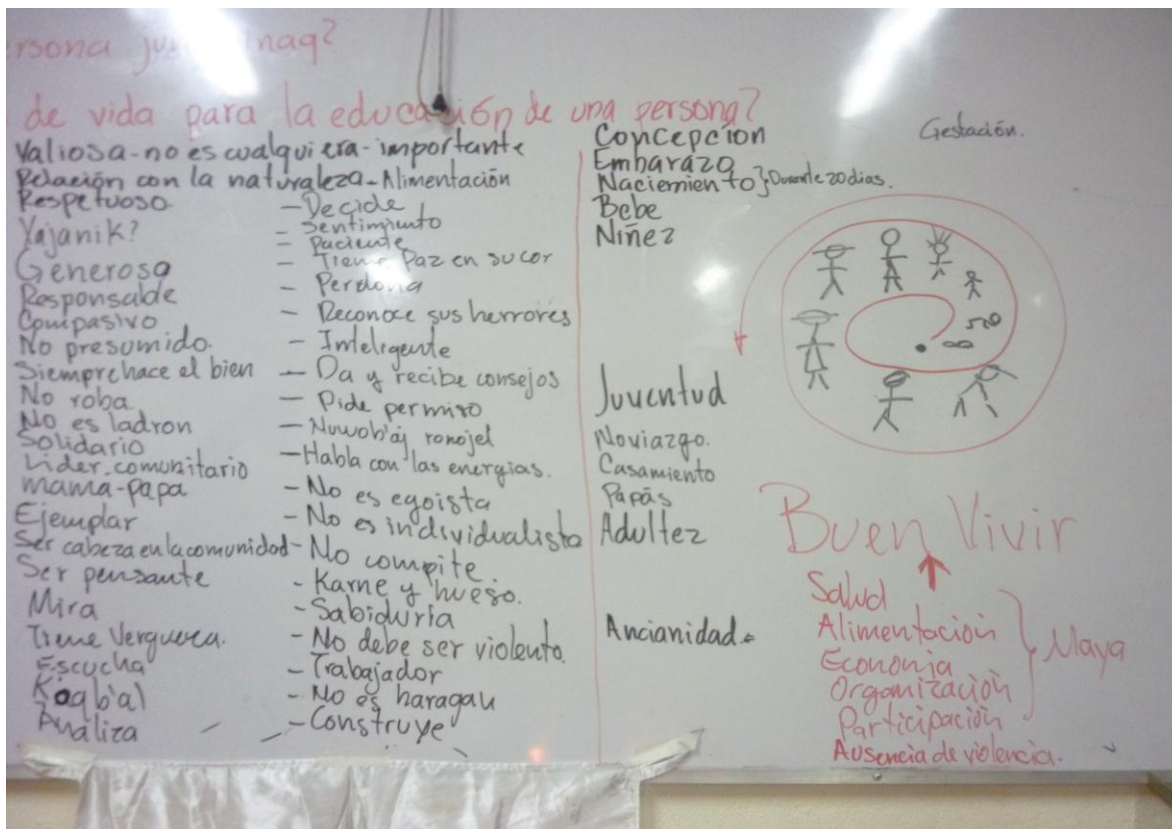 ersona jun winaq?
de vida para la educación de una persona?
Valiosa-no es cualquiera-importante
Relación con la naturaleza-Alimentación
Respetuoso
Yajanik?
Generosa
Responsable
Compasivo
No presumido.
Siempre hace el bien
No roba
No es ladron
Solidario
Lider comunitario
mama-papa
Ejemplar
Ser cabeza en la comunidad
Ser pensante
Mira
Tiene Verguenza.
Escucha
K'aqb'al
Analiza
-Decide
-Sentimiento
- Paciente
- Tiene Paz en su cor
- Perdona
- Reconoce sus herrores
- Inteligente
- Da y recibe consejos
- Pide permiso
- Nuwob'aj ronojel
-Habla con las energias.
- No es egoista
- No es individualista
- No compite.
- Karne y hueso.
- Sabiduria
- No debe ser violento.
- Trabajador
- No es haragan
- Construye
Concepcion
Embarazo
Naciemiento} Durante 20 dias.
Bebe
Niñez
Juventud
Noviazgo.
Casamiento
Papás
Adultez
Ancianidad.
Gestación.
Buen Vivir
Salud
Alimentación
Economia
Organización
Participación
Ausencia de violencia.
Maya